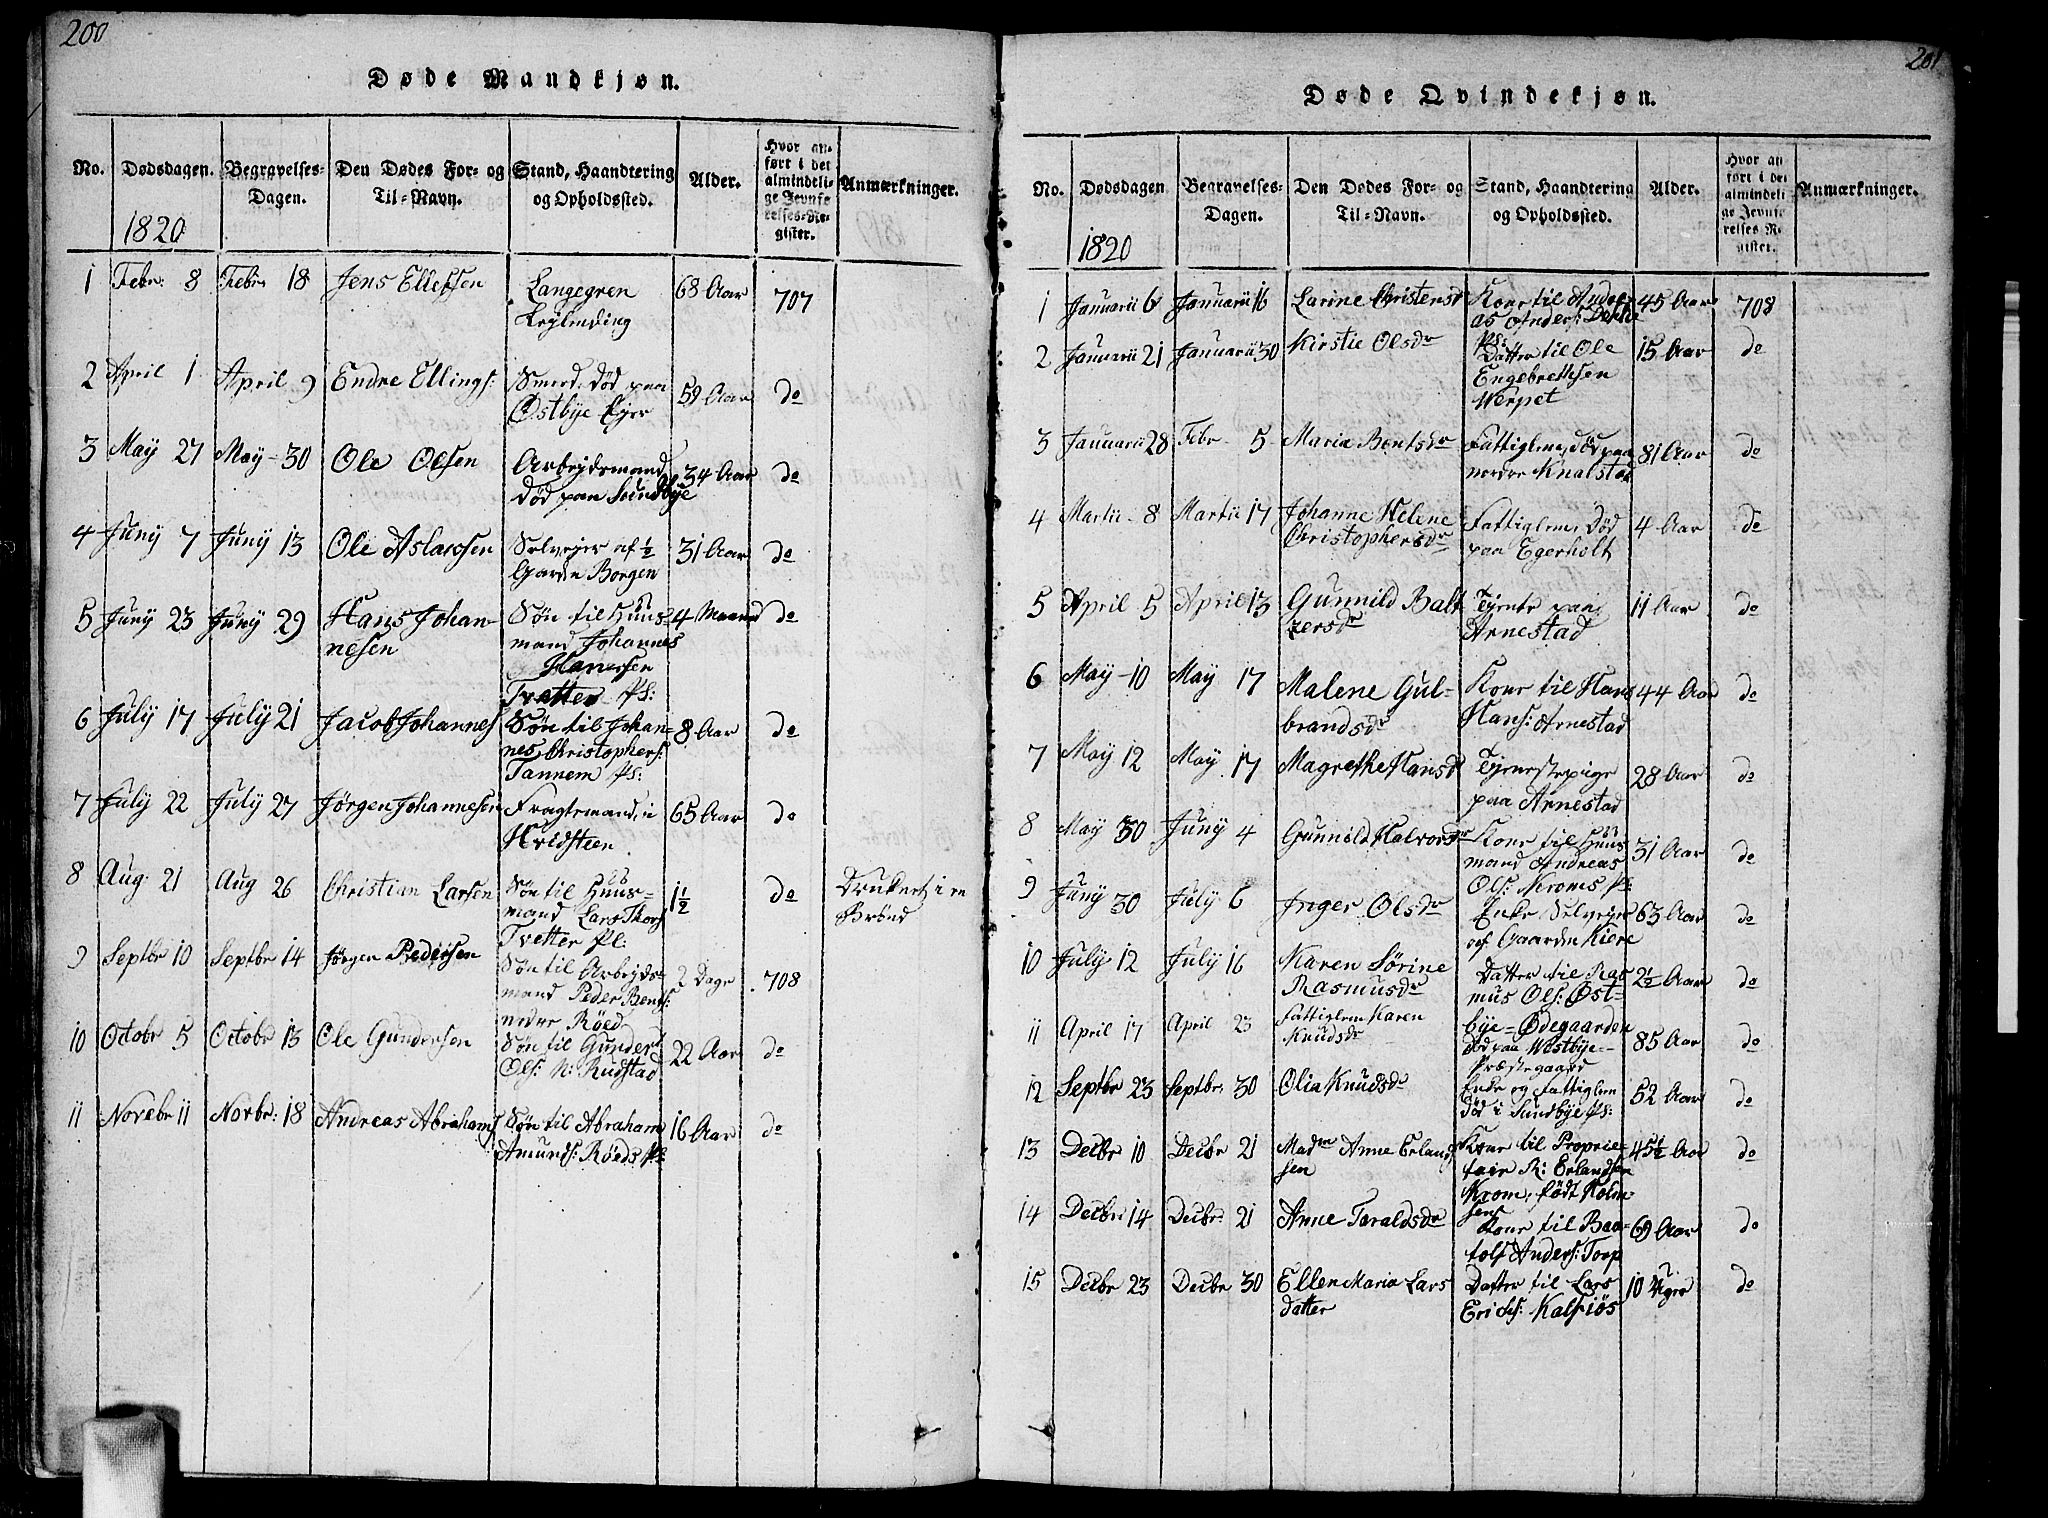 200
Døde Mandkjøn.
No. Dødsdagen. Begravelses-Dagen. Den Dødes For- og Til-Navn. Stand, Haandtering og Opholdssted. Alder. Hvor anført i det almindelige Jevnførelses-Register. Anmærkninger.
1820
1 Febr: 8 Febr 18 Jens Ellefsen Langegren 68 Aar 707
2 April 1 April 9 Endre Ellings: død paa 59 Aar do
Østbye Ejer
3 May 27 May 30 Ole Olsen Arbejdsmand 34 Aar do
død paa Sundbye
4 Juny 7 Juny 13 Ole Aslacsen Selvejer af ½ 31 Aar do
Garden Borgen
5 Juny 23 Juny 29 Hans Johan- Søn til Huus- 4 Maaned do
nesen mand Johannes
Hansen
Tvetter Ps:
6 July 17 July 21 Jacob Johannes Søn til Johan- 8 Aar do
nes Christophers:
Tannem Ps:
7 July 22 July 27 Jørgen Johannesen Fragtemand i 65 Aar do
Hvidsteen
8 Aug: 21 Aug 26 Christian Larsen Søn til Huus- 1½ do Druknet i en
mand Lars Thors Brønd
Tvetter Pl:
9 Septbr 10 Septbr 14 Jørgen Pedersen Søn til Arbejds- 2 Dage 708
mand Peder Bents:
nedre Røed
10 Octobr 5 Octobr 13 Ole Gundersen Søn til Gunder 22 Aar do
Ols: N: Rudstad
11 Novebr 11 Novbr: 18 Andreas Abrahams Søn til Abraham 16 Aar do
Amunds: Røeds Ps
201
Døde Qvindekjøn.
No. Dødsdagen Begravelses-Dagen. Den Dødes For- og Til-Navn. Stand, Haandtering og Opholdssted. Alder. Hvor anført i det almindelige Jevnførelses Register. Anmærkninger.
1820
1 Januarii 6 Januarii 16 Larine Christensd Kone til Andre- 45 Aar 708
as Anders:
Ps:
2 Januarii 21 Januarii 30 Kirstie Olsdr Datter til Ole 15 Aar do
Engebrethsen
Werpet
3 Januarii 28 Febr 5 Maria Bentsdr Fattiglem, død paa 81 Aar do
nordre Knalstad
4 Martii 8 Martii 17 Johanne Helene Fattiglem, død 4 Aar do
Christophersdr paa Egerholt
5 April 5 April 13 Gunnild Balt Tjente paa 11 Aar do
zersdr Arnestad
6 May 10 May 17 Malene Gul- Kone til Hans 44 Aar do
brandsdr Hans: Arnestad
7 May 12 May 17 Magrethe Hansd Tjenestepige 28 Aar do
paa Arnestad
8 May 30 Juny 4 Gunnild Halvorsdr Kone til Huus 31 Aar do
mand Andreas
Ols: Kroms Ps:
9 Juny 30 July 6 Inger Olsdr Enke Selvejer 63 Aar do
af Gaarden Kiere
10 July 12 July 16 Karen Sørine Datter til Ras 2½ Aar do
Rasmusdr mus Ols: Øst-
bye=Ødegaarden
11 April 17 April 23 Fattiglem Karen død paa Westbye- 85 Aar do
Knudsdr Præstegaard
12 Septbr 23 Septbr 30 Olia Knudsdr Enke og Fattiglem 52 Aar do
død i Sundbye Ps:
13 Decbr 10 Decbr 21 Madm Anne Erland Kone til Proprie- 45½ Aar do
sen tair R: Erlandsen
Krom, født Holm
sen
14 Decbr 14 Decbr 21 Anne Taraldsdr Kone til Baa- 69 Aar do
tolf Anders: Torp
15 Decbr 23 Decbr 30 Ellen Maria Lars Datter til Lars 10 Uger do
datter Erichs: Kalsiøs